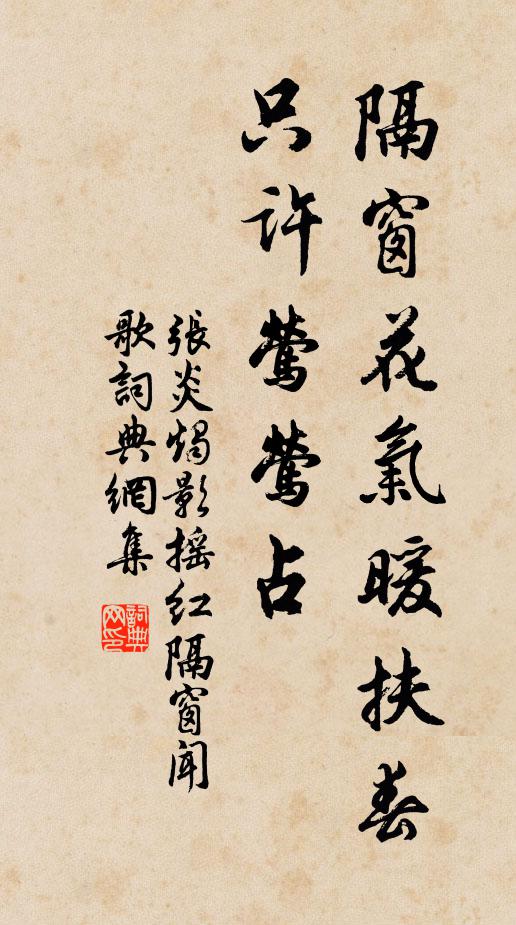 隔窗花氣暖扶春
只許鶯鶯占
張炎燭影搖紅隔窗聞
歌詞典網集
詞典網印